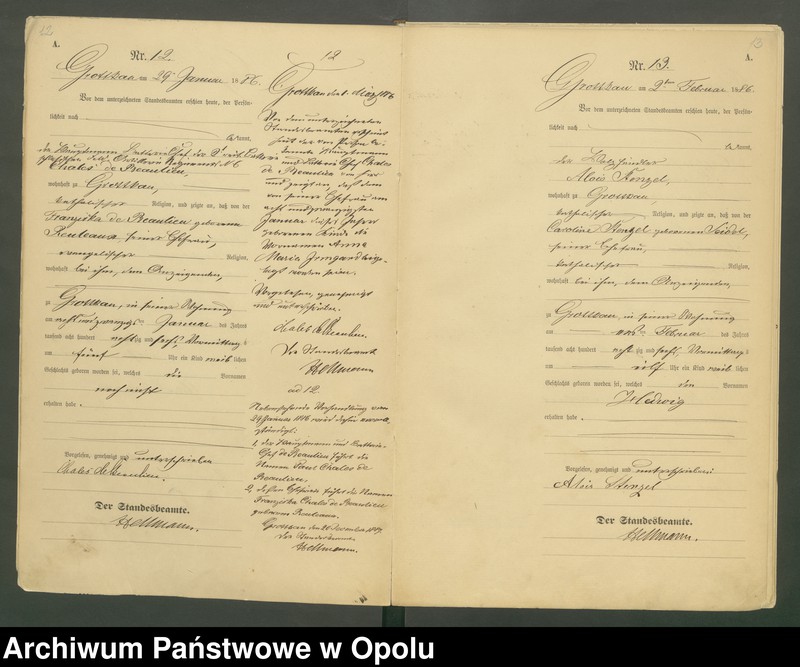 12
A.
Nr. 12.
Grottkau am 29. Januar 1886.
Vor dem unterzeichneten Standesbeamten erschien heute, der Persön-
lichkeit nach
kannt,
der Hauptmann
Chales de Beaulieu,
wohnhaft zu Grottkau,
katholischer Religion, und zeigte an, daß von der
Franziska de Beaulieu geborenen
seiner Ehefrau,
evangelischer Religion,
wohnhaft bei ihm, dem Anzeigenden,
zu Grottkau, in seiner Wohnung
am achtundzwanzigsten Januar des Jahres
tausend acht hundert achtzig und sechs Vormittags
um fünf Uhr ein Kind weiblichen
Geschlechts geboren worden sei, welches die Vornamen
noch nicht
erhalten habe.
Vorgelesen, genehmigt und unterschrieben
Chales de Beaulieu.
Der Standesbeamte.
Hellmann.
12
Grottkau den März 1886
Vor dem unterzeichneten
Standesbeamten erschien
heut der von Person be-
kannte Hauptmann
und Chales
de Beaulieu von hier
und zeigte an, daß dem
von seiner Ehefrau am
acht und zwanzigsten
Januar dieses Jahres
geborenen Kinde die
Vornamen Anna
Maria Irmgard beige-
legt worden seien.
Vorgelesen, genehmigt
und unterschrieben.
Chales de Beaulieu.
Der Standesbeamte
Hellmann
ad 12
Nebenstehende Verhandlung vom
29 Januar 1886 wird dahin
1, der Hauptmann und Batterie-
Chef de Beaulieu führt die
Namen Chales de
Beaulieu,
2, dessen Ehefrau führt die Namen
Franziska Chales de Beaulieu
geborene
Grottkau den
Der Standesbeamte
Hellmann.
13
A.
Nr. 13.
Grottkau am 2ten Februar 1886.
Vor dem unterzeichneten Standesbeamten erschien heute, der Persön-
lichkeit nach
kannt,
der Holzhändler
Alois Stenzel,
wohnhaft zu Grottkau,
katholischer Religion, und zeigte an, daß von der
Caroline Stenzel geborenen Seidel,
seiner Ehefrau,
katholischer Religion,
wohnhaft bei ihm, dem Anzeigenden,
zu Grottkau, in seiner Wohnung
am Februar des Jahres
tausend acht hundert achtzig und sechs, Vormittags
um elf Uhr ein Kind weiblichen
Geschlechts geboren worden sei, welches den Vornamen
Hedwig
erhalten habe.
Vorgelesen, genehmigt und unterschrieben
Alois Stenzel
Der Standesbeamte.
Hellmann.
Archiwum Państwowe w Opolu